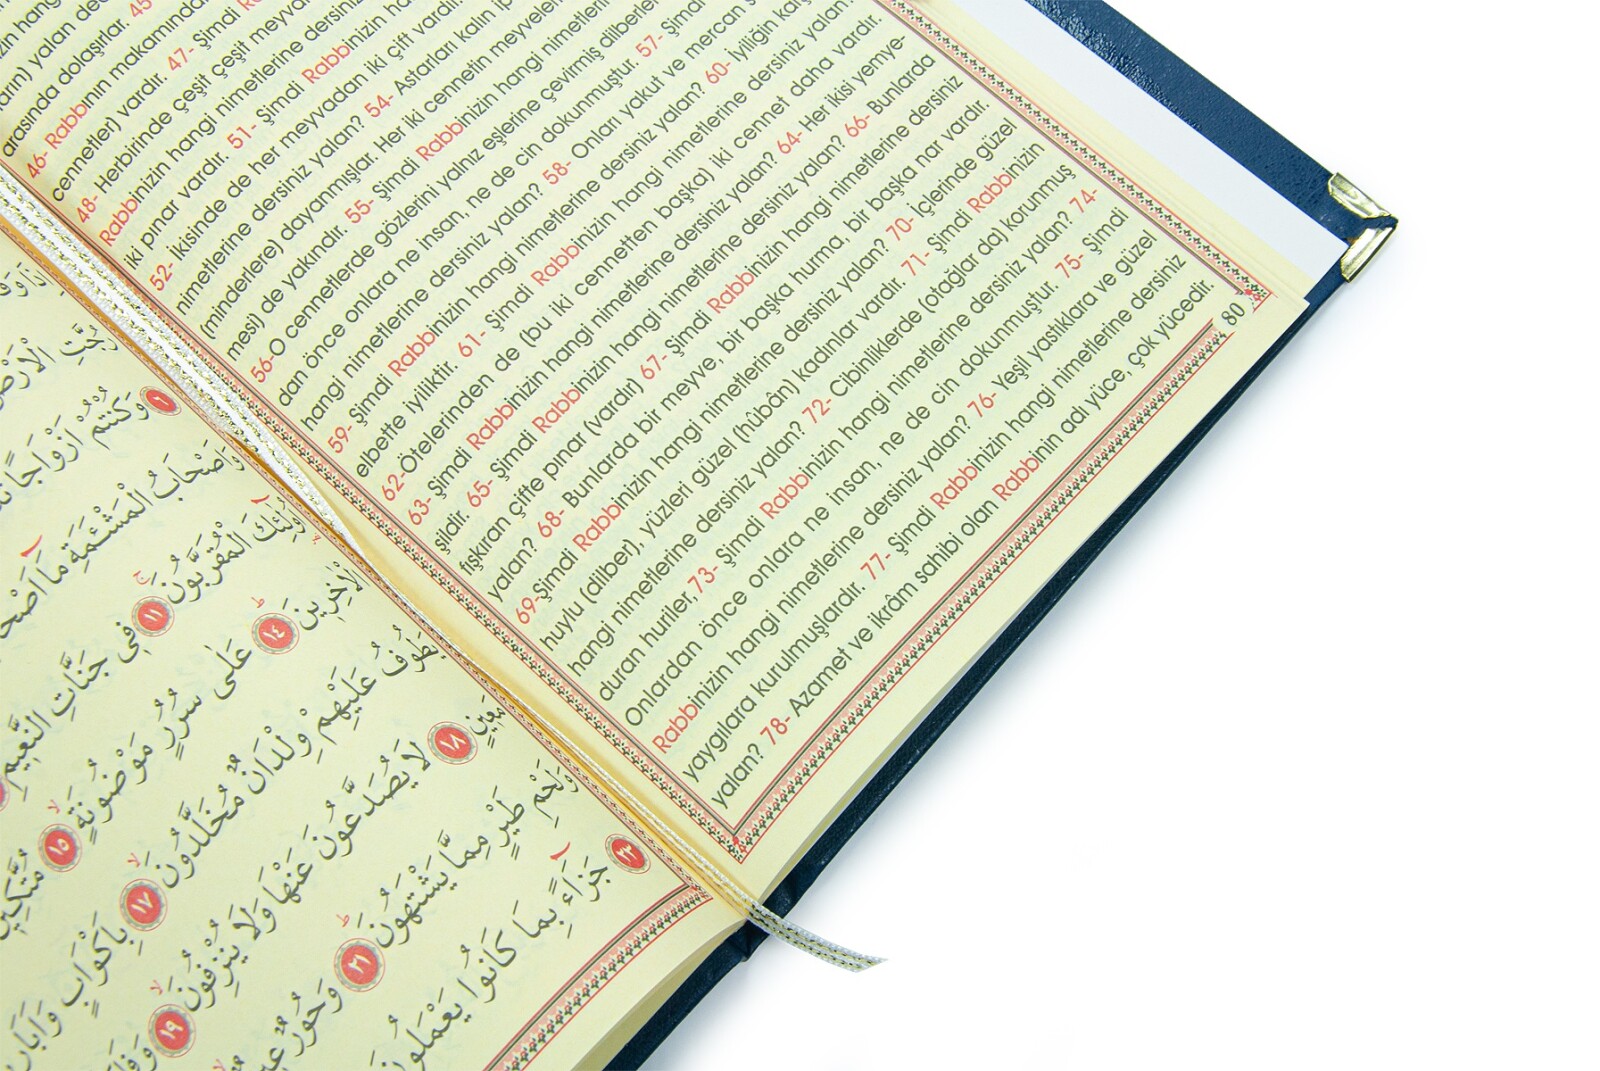 arasında dolaşırlar. 45-
46- Rabbının makamından
cennetler) vardır. 47- Şimdi
48- Herbirinde çeşit çeşit meyva
Rabbinizin hangi nimetlerine dersiniz
iki pınar vardır. 51- Şimdi Rabbinizin
52- İkisinde de her meyvadan iki çift vardır.
nimetlerine dersiniz yalan? 54- Astarları kalın
(minderlere) dayanmışlar. Her iki cennetin meyveleri
mesi) de yakındır. 55- Şimdi Rabbinizin hangi nimetlerine
56-O cennetlerde gözlerini yalnız eşlerine çevirmiş dilberler
dan önce onlara ne insan, ne de cin dokunmuştur. 57- Şimdi
hangi nimetlerine dersiniz yalan? 58- Onları yakut ve mercan
59- Şimdi Rabbinizin hangi nimetlerine dersiniz yalan? 60- İyiliğin
elbette iyiliktir. 61- Şimdi Rabbinizin hangi nimetlerine dersiniz yalan?
62-Ötelerinden de (bu iki cennetten başka) iki cennet daha vardır.
63- Şimdi Rabbinizin hangi nimetlerine dersiniz yalan? 64- Her ikisi yemye-
şildir. 65- Şimdi Rabbinizin hangi nimetlerine dersiniz yalan? 66- Bunlarda
fışkıran çifte pınar (vardır) 67- Şimdi Rabbinizin hangi nimetlerine dersiniz
yalan? 68- Bunlarda bir meyve, bir başka hurma, bir başka nar vardır.
69-Şimdi Rabbinizin hangi nimetlerine dersiniz yalan? 70- İçlerinde güzel
huylu (dilber), yüzleri güzel (hûbân) kadınlar vardır. 71- Şimdi Rabbinizin
hangi nimetlerine dersiniz yalan? 72- Cibinliklerde (otağlar da) korunmuş
duran huriler, 73- Şimdi Rabbinizin hangi nimetlerine dersiniz yalan? 74-
Onlardan önce onlara ne insan, ne de cin dokunmuştur. 75- Şimdi
Rabbinizin hangi nimetlerine dersiniz yalan? 76- Yeşil yastıklara ve güzel
yaygılara kurulmuşlardır. 77- Şimdi Rabbinizin hangi nimetlerine dersiniz
yalan? 78- Azamet ve ikrâm sahibi olan Rabbinin adı yüce, çok yücedir.
80
٦ وَكُنْتُمْ اَزْوَاجًا
وَاَصْحَابُ الْمَشْئَمَةِ مَا
الْمُقَرَّبُونَ ١١ فِى جَنَّاتِ النَّعِيمِ
الْاٰخِرِينَ ١٤ عَلٰى سُرُرٍ مَوْضُونَةٍ ١٥
يَطُوفُ عَلَيْهِمْ وِلْدَانٌ مُخَلَّدُونَ ١٧ بِاَكْوَابٍ
مَعِينٍ ١٨ لَا يُصَدَّعُونَ عَنْهَا وَلَا يُنْزِفُونَ ١٩
وَلَحْمِ طَيْرٍ مِمَّا يَشْتَهُونَ ٢١ وَحُورٌ
٢٣ جَزَاءً بِمَا كَانُوا يَعْمَلُونَ